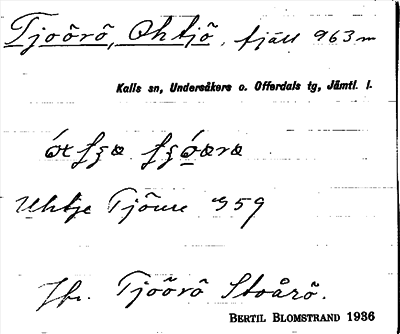 Tjoõrõ, Ohtjõ, fjäll 963 m
Kalls sn, Undersåkers o. Offerdals tg, Jämtl. l.
Uhtje Tjõure 959
Jfr. Tjoõrõ Stoårõ.
BERTIL BLOMSTRAND 1936